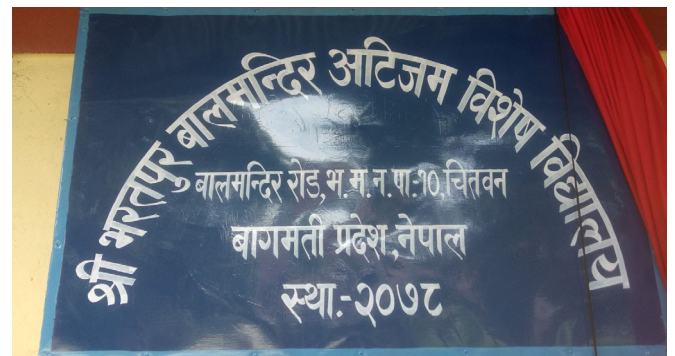 श्री भरतपुर बालमन्दिर अटिजम विशेष विद्यालय
बालमन्दिर रोड, भ.म.न.पा.-१०, चितवन
बागमती प्रदेश, नेपाल
स्था.-२०७८